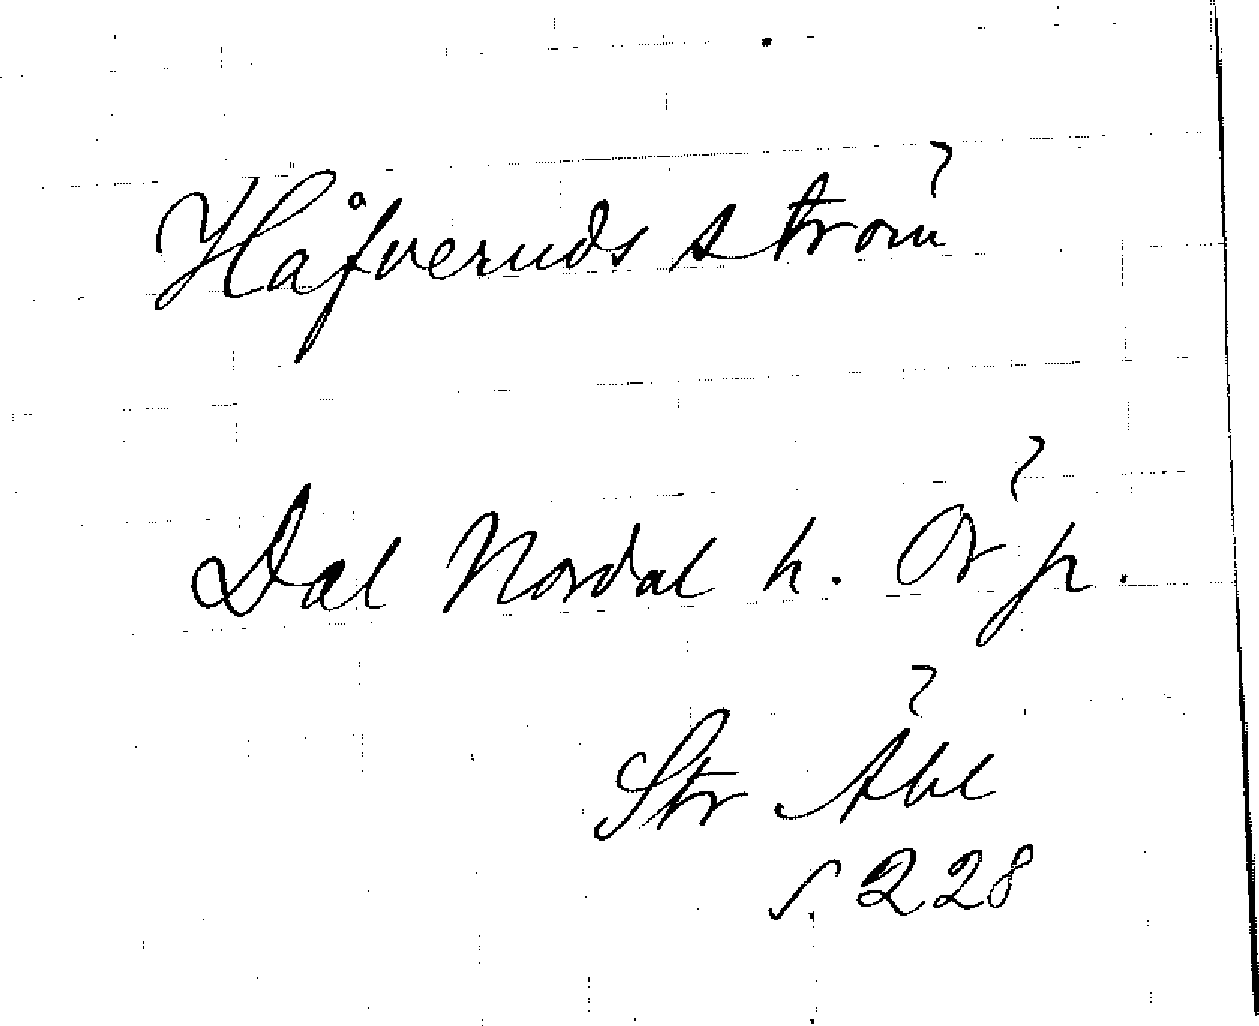 Håfveruds ström
Dal Nordal h. Ör p.
Str Äbl
s. 228